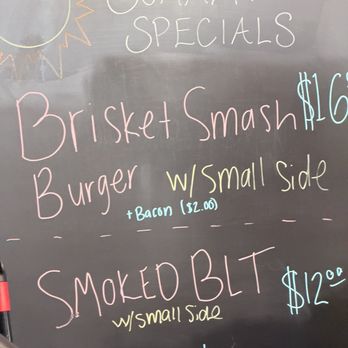 SPECIALS
Brisket Smash $16
Burger w/ Small Side
+ Bacon ($2.00)
SMOKED BLT $12.00
w/ small side